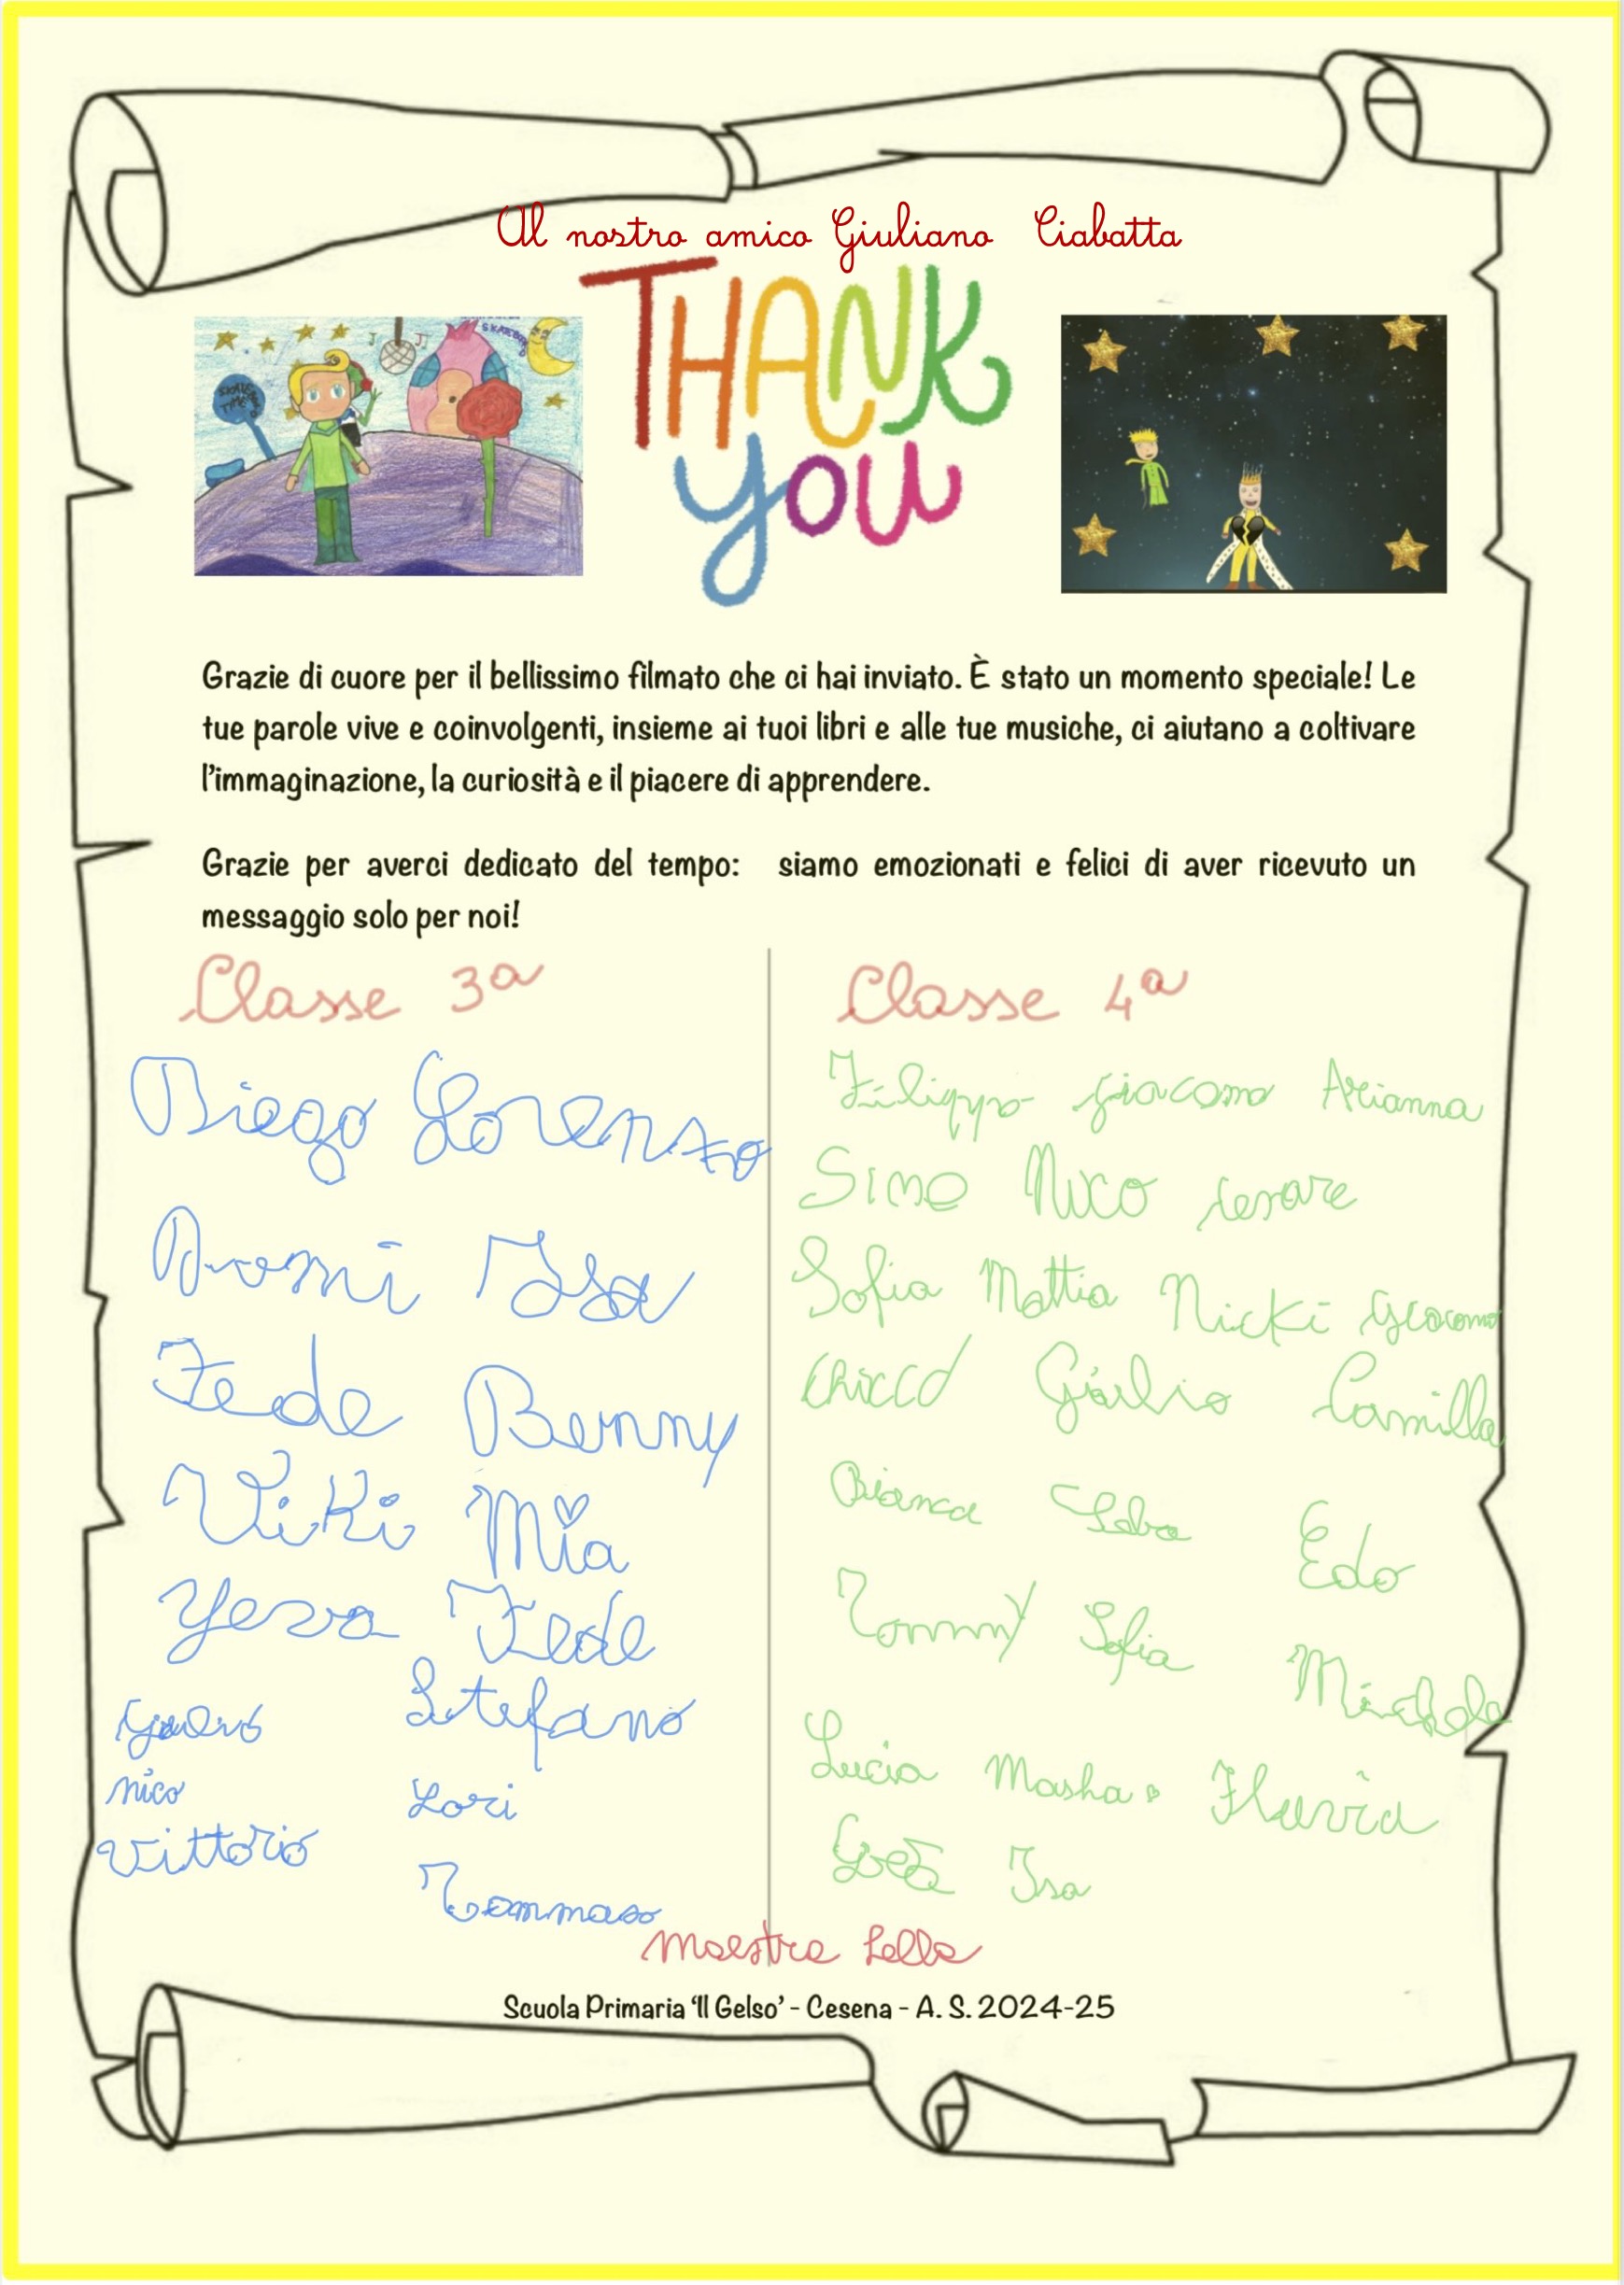 Al nostro amico Giuliano Ciabatta
THANK
you
SKATEBOARD
SKATE
TIME
Grazie di cuore per il bellissimo filmato che ci hai inviato. È stato un momento speciale! Le
tue parole vive e coinvolgenti, insieme ai tuoi libri e alle tue musiche, ci aiutano a coltivare
l'immaginazione, la curiosità e il piacere di apprendere.
Grazie per averci dedicato del tempo: siamo emozionati e felici di aver ricevuto un
messaggio solo per noi!
Classe 3ª
Diego Lorenzo
Noemi Isa
Fede Benny
Viki Mia
Yeva Fede
Giulio Stefano
nico Lori
Vittorio
Tommaso
Classe 4ª
Filippo giacomo Arianna
Simo Nico cesare
Sofia Mattia Nicki Giacomo
Chicco Giulio Camilla
Bianca Edo
Tommy Sofia Michele
Lucia Masha Flavia
Isa
maestra Lella
Scuola Primaria 'Il Gelso' - Cesena - A. S. 2024-25